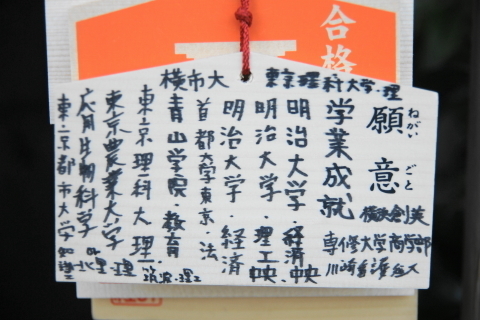 合格
東京理科大学・理
横市大
願意
ねがいごと
学業成就
横浜創英
専修大学商学部
明治大学・経済
明治大学・理工
明治大学・経済
首都大学東京・法
青山学院・教育
東京理科大・理
東京農業大学
応用生物科学
東京都市大学
北里・理
筑波・理工